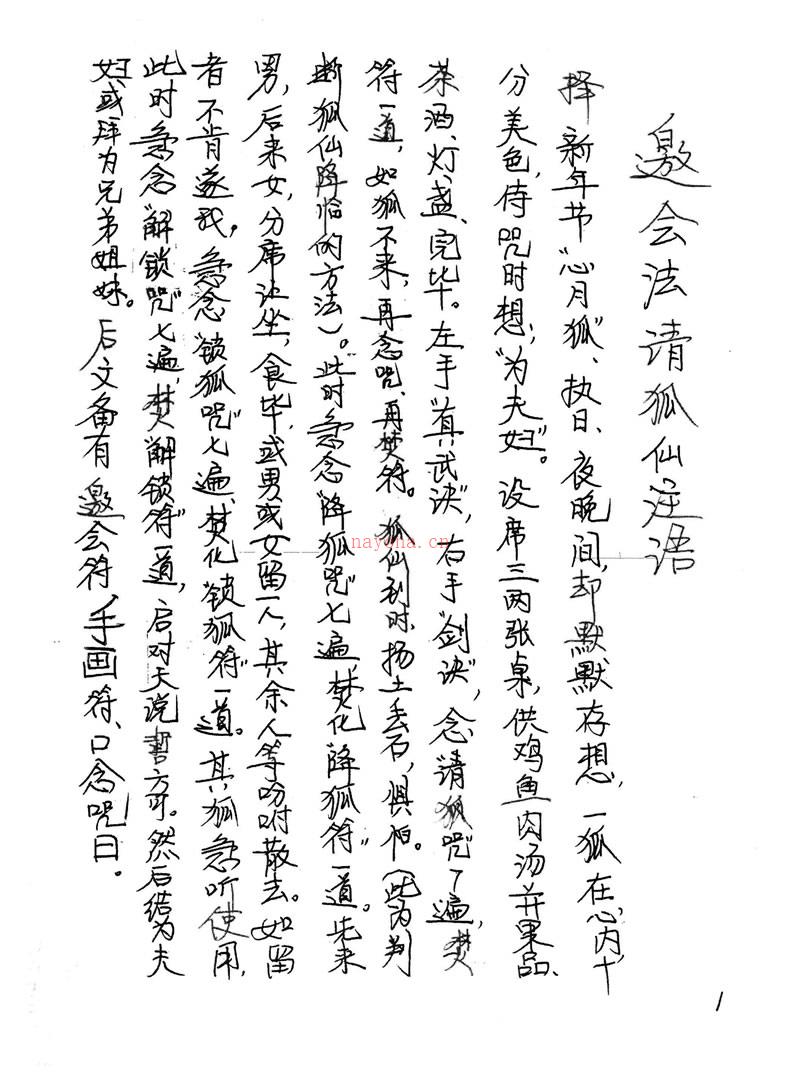 邀会法请狐仙注语
择新年节“心月狐”、执日、夜晚间,却默默存想,一狐在心内,十
分美色,侍咒时想;“为夫妇”。设席三两张桌,供鸡鱼肉汤并果品、
茶酒、灯、盏、完毕。左手“真武决”,右手“剑决”,念“请狐咒”了遍,焚
符一道,如狐不来,再念咒、再焚符。狐仙到时,扬土丢石,惧怕。(此为判
断狐仙降恰的方法)。此时急念“降狐咒”七遍,焚化“降狐符”一道。先来
男,后来女,分席让坐,食毕,或男或女留一人,其余人等吩咐散去。如留
者不肯遂我,急念“锁狐咒”七遍、焚化“锁狐符”一道。其狐急听使用,
此时急念“解锁咒”七遍,焚“解锁符”一道,后对天说誓方可。然后结为夫
妇、或拜为兄弟姐妹。后文备有邀会符、手画符、口念咒曰。
nayona.cn
1